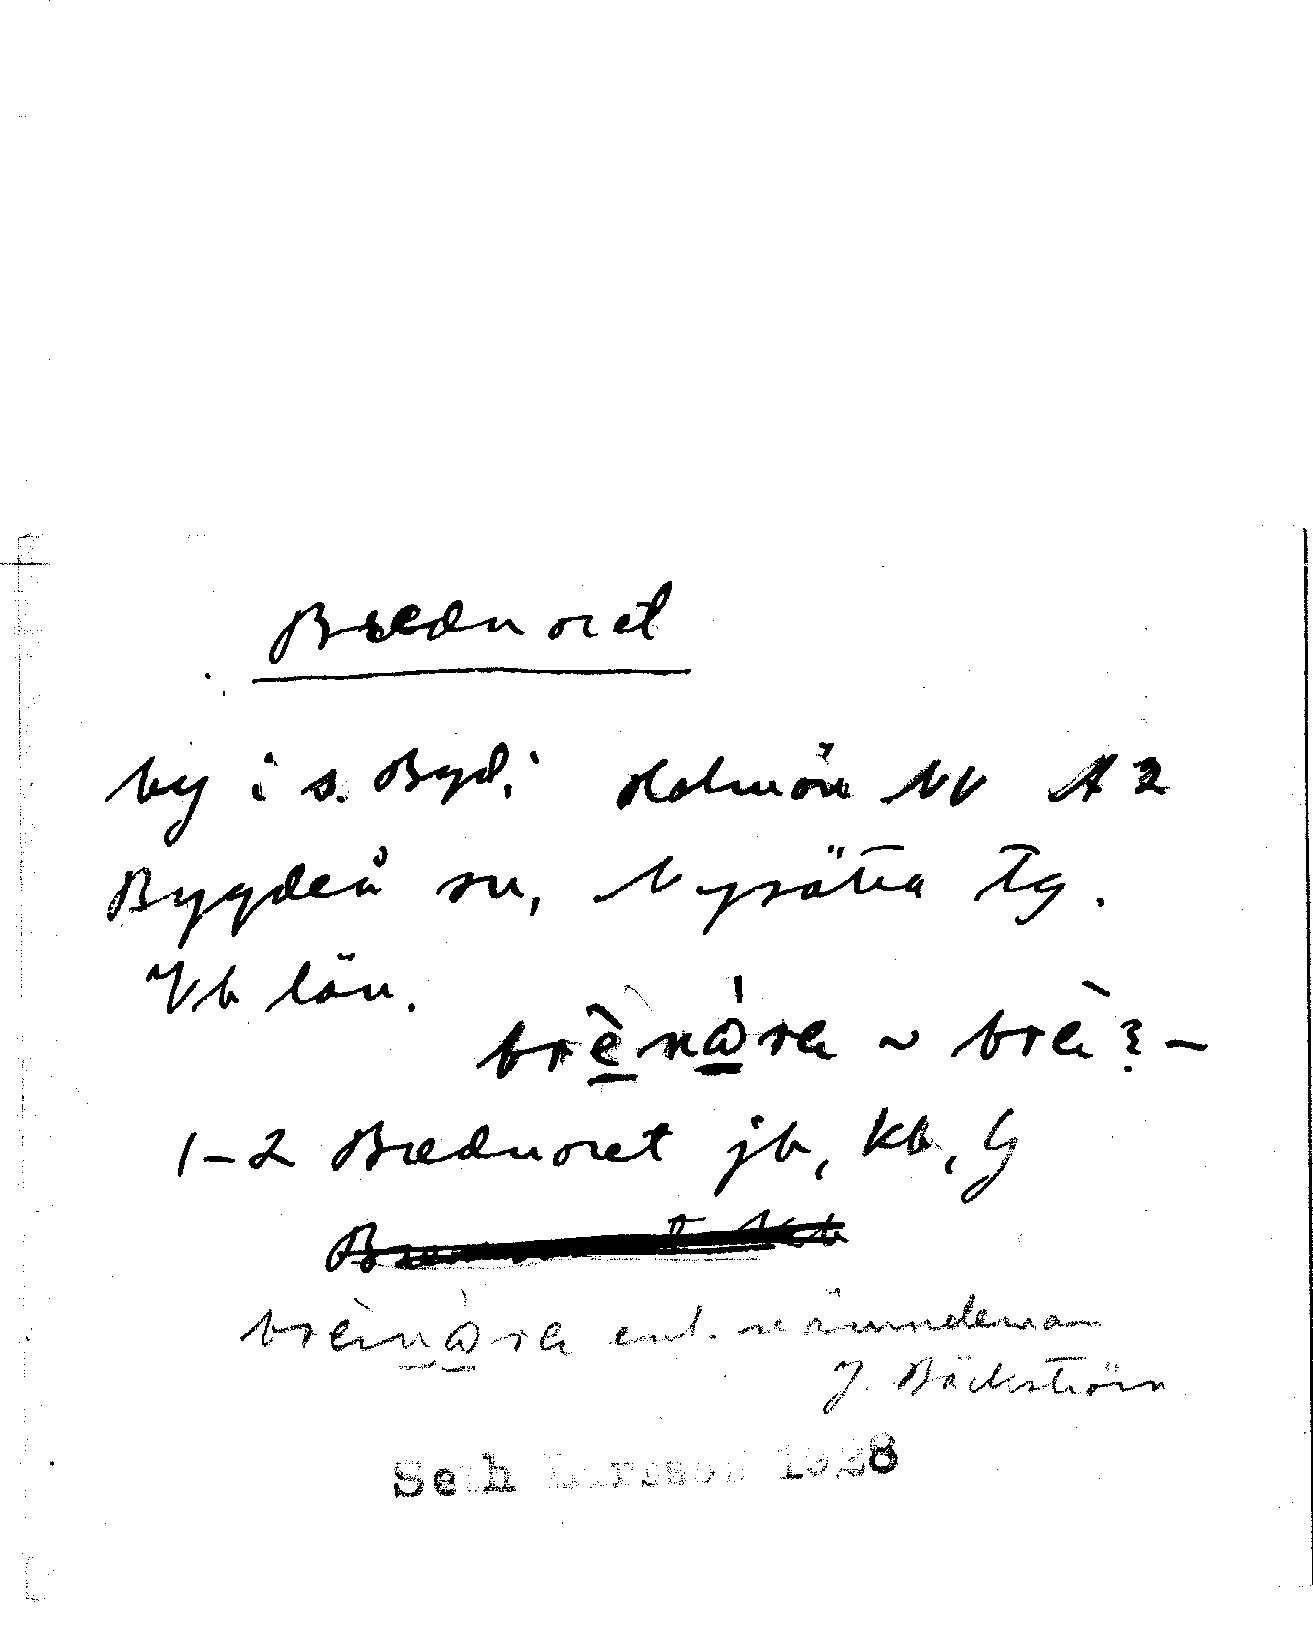 Brednoret
by i s. Bygd; Holmön NV A 2
Bygdeå sn, Nysätra Tg.
Vb län.
brènå̀ra ~ brè ? –
1–2 Brednoret jb, kb, G
brèinå̀ra enl. nämndeman
J. Bäckström
Seth Larsson 1928